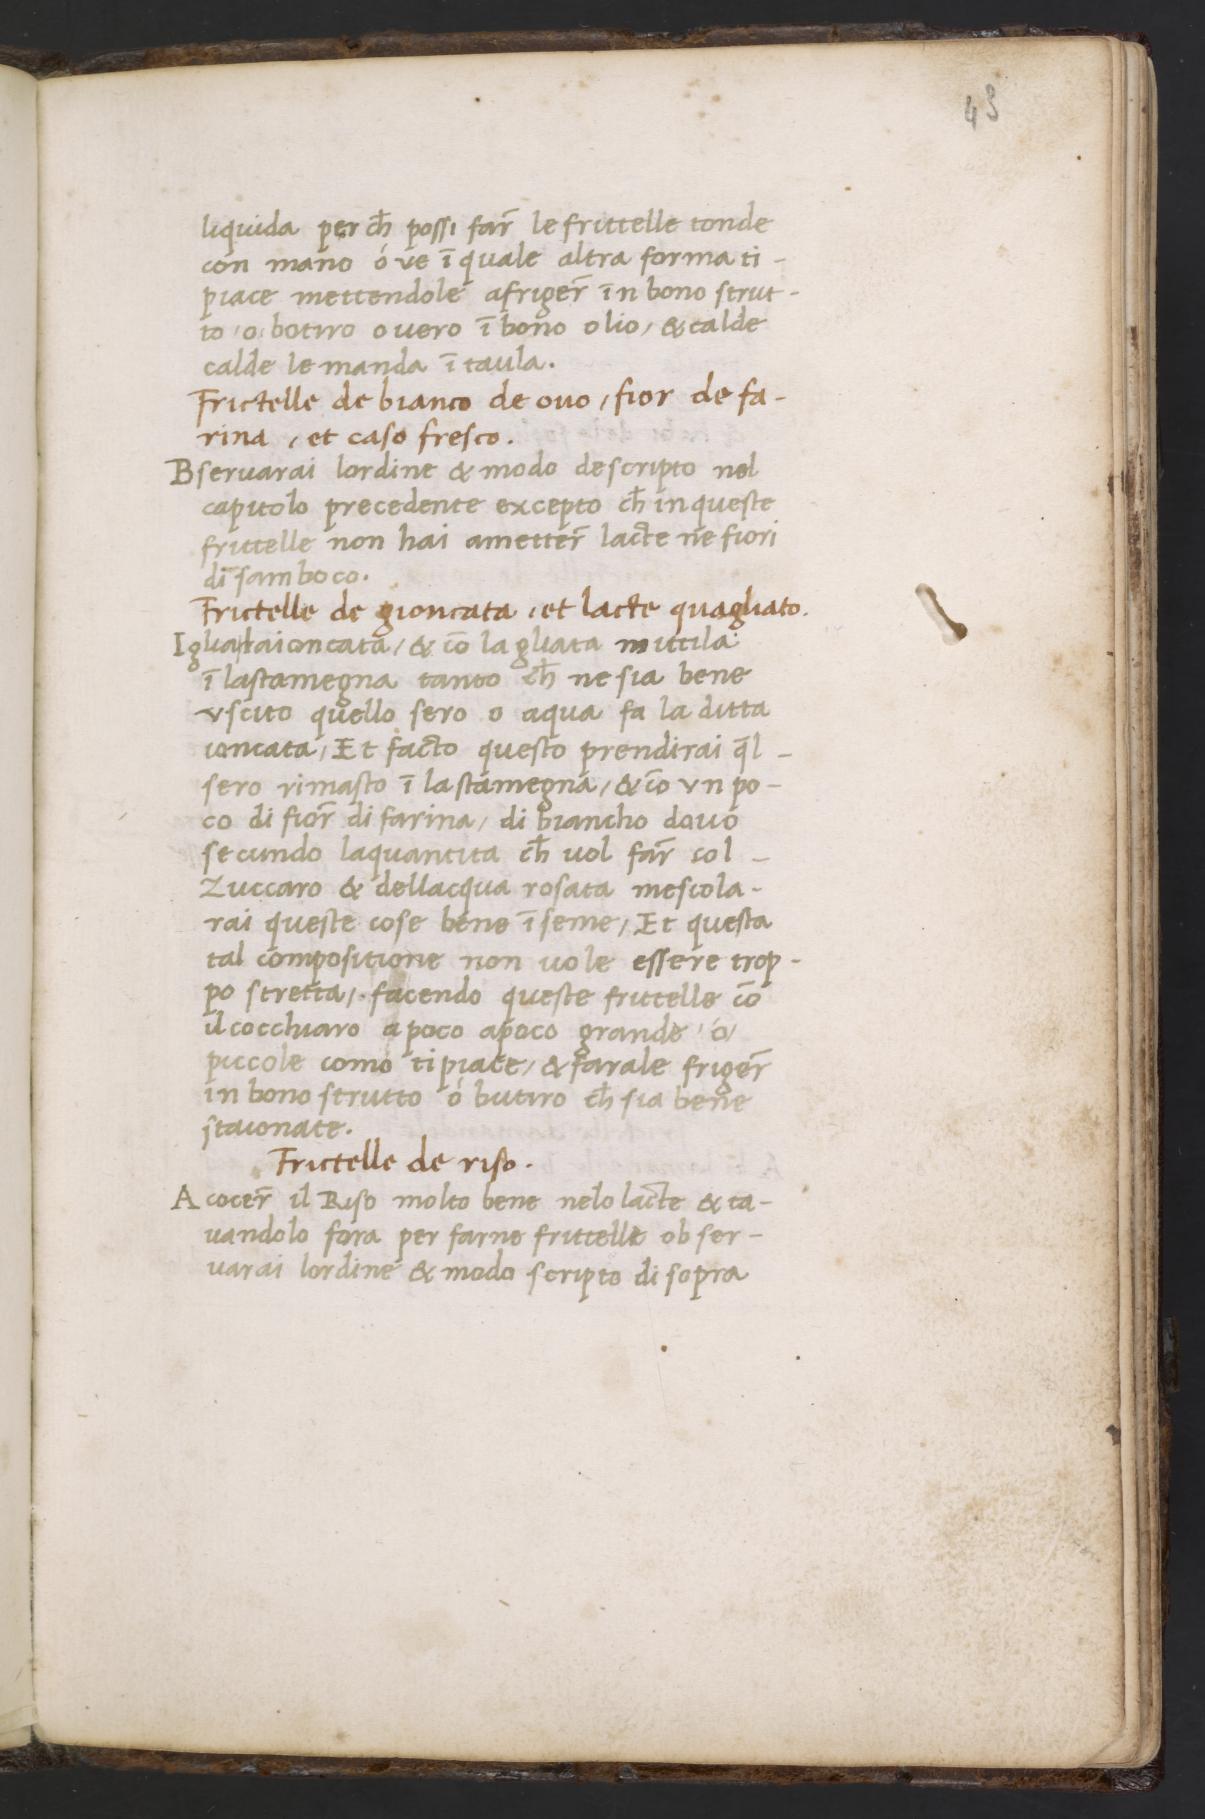 43
liquida per ch̄ possi far̄ le frittelle tonde
con mano ó ve ī quale altra forma ti -
piace mettendole afriger̄ īn bono strut -
to / o botiro overo ī bono olio / & calde
calde le manda ī taula.
Frictelle de bianco de ouo / fior de fa -
rina / et caso fresco.
Bseruarai lordine & modo descripto nel
capitolo precedente excepto ch̄ in queste
frittelle non hai ametter̄ lacte ne fiori
di samboco.
Frictelle de gioncata / et lacte quagliato.
Igliataioncata / & cō la gliata mittila
ī lastamegna tanto ch̄ ne sia bene
vscito quello sero o aqua fa la ditta
ioncata / Et facto questo prendirai q̄l -
sero rimasto ī la stamegna / & cō vn po -
co di fior̄ di farina / di biancho dovo
secundo laquantita ch̄ uol far̄ col -
Zuccaro & dellacqua rosata mescola -
rai queste cose bene ī seme / Et questa
tal compositione non uole essere trop -
po stretta / . facendo queste frittelle cō
il cocchiaro a poco apoco grande / o /
piccole como ti piace / & farale friger̄
in bono strutto ó butiro ch̄ sia bene
staionate.
Frictelle de riso.
A cocer̄ il Riso molto bene nelo lacte & ca -
uandolo fora per farne frittelle obser -
uarai lordine & modo scripto di sopra